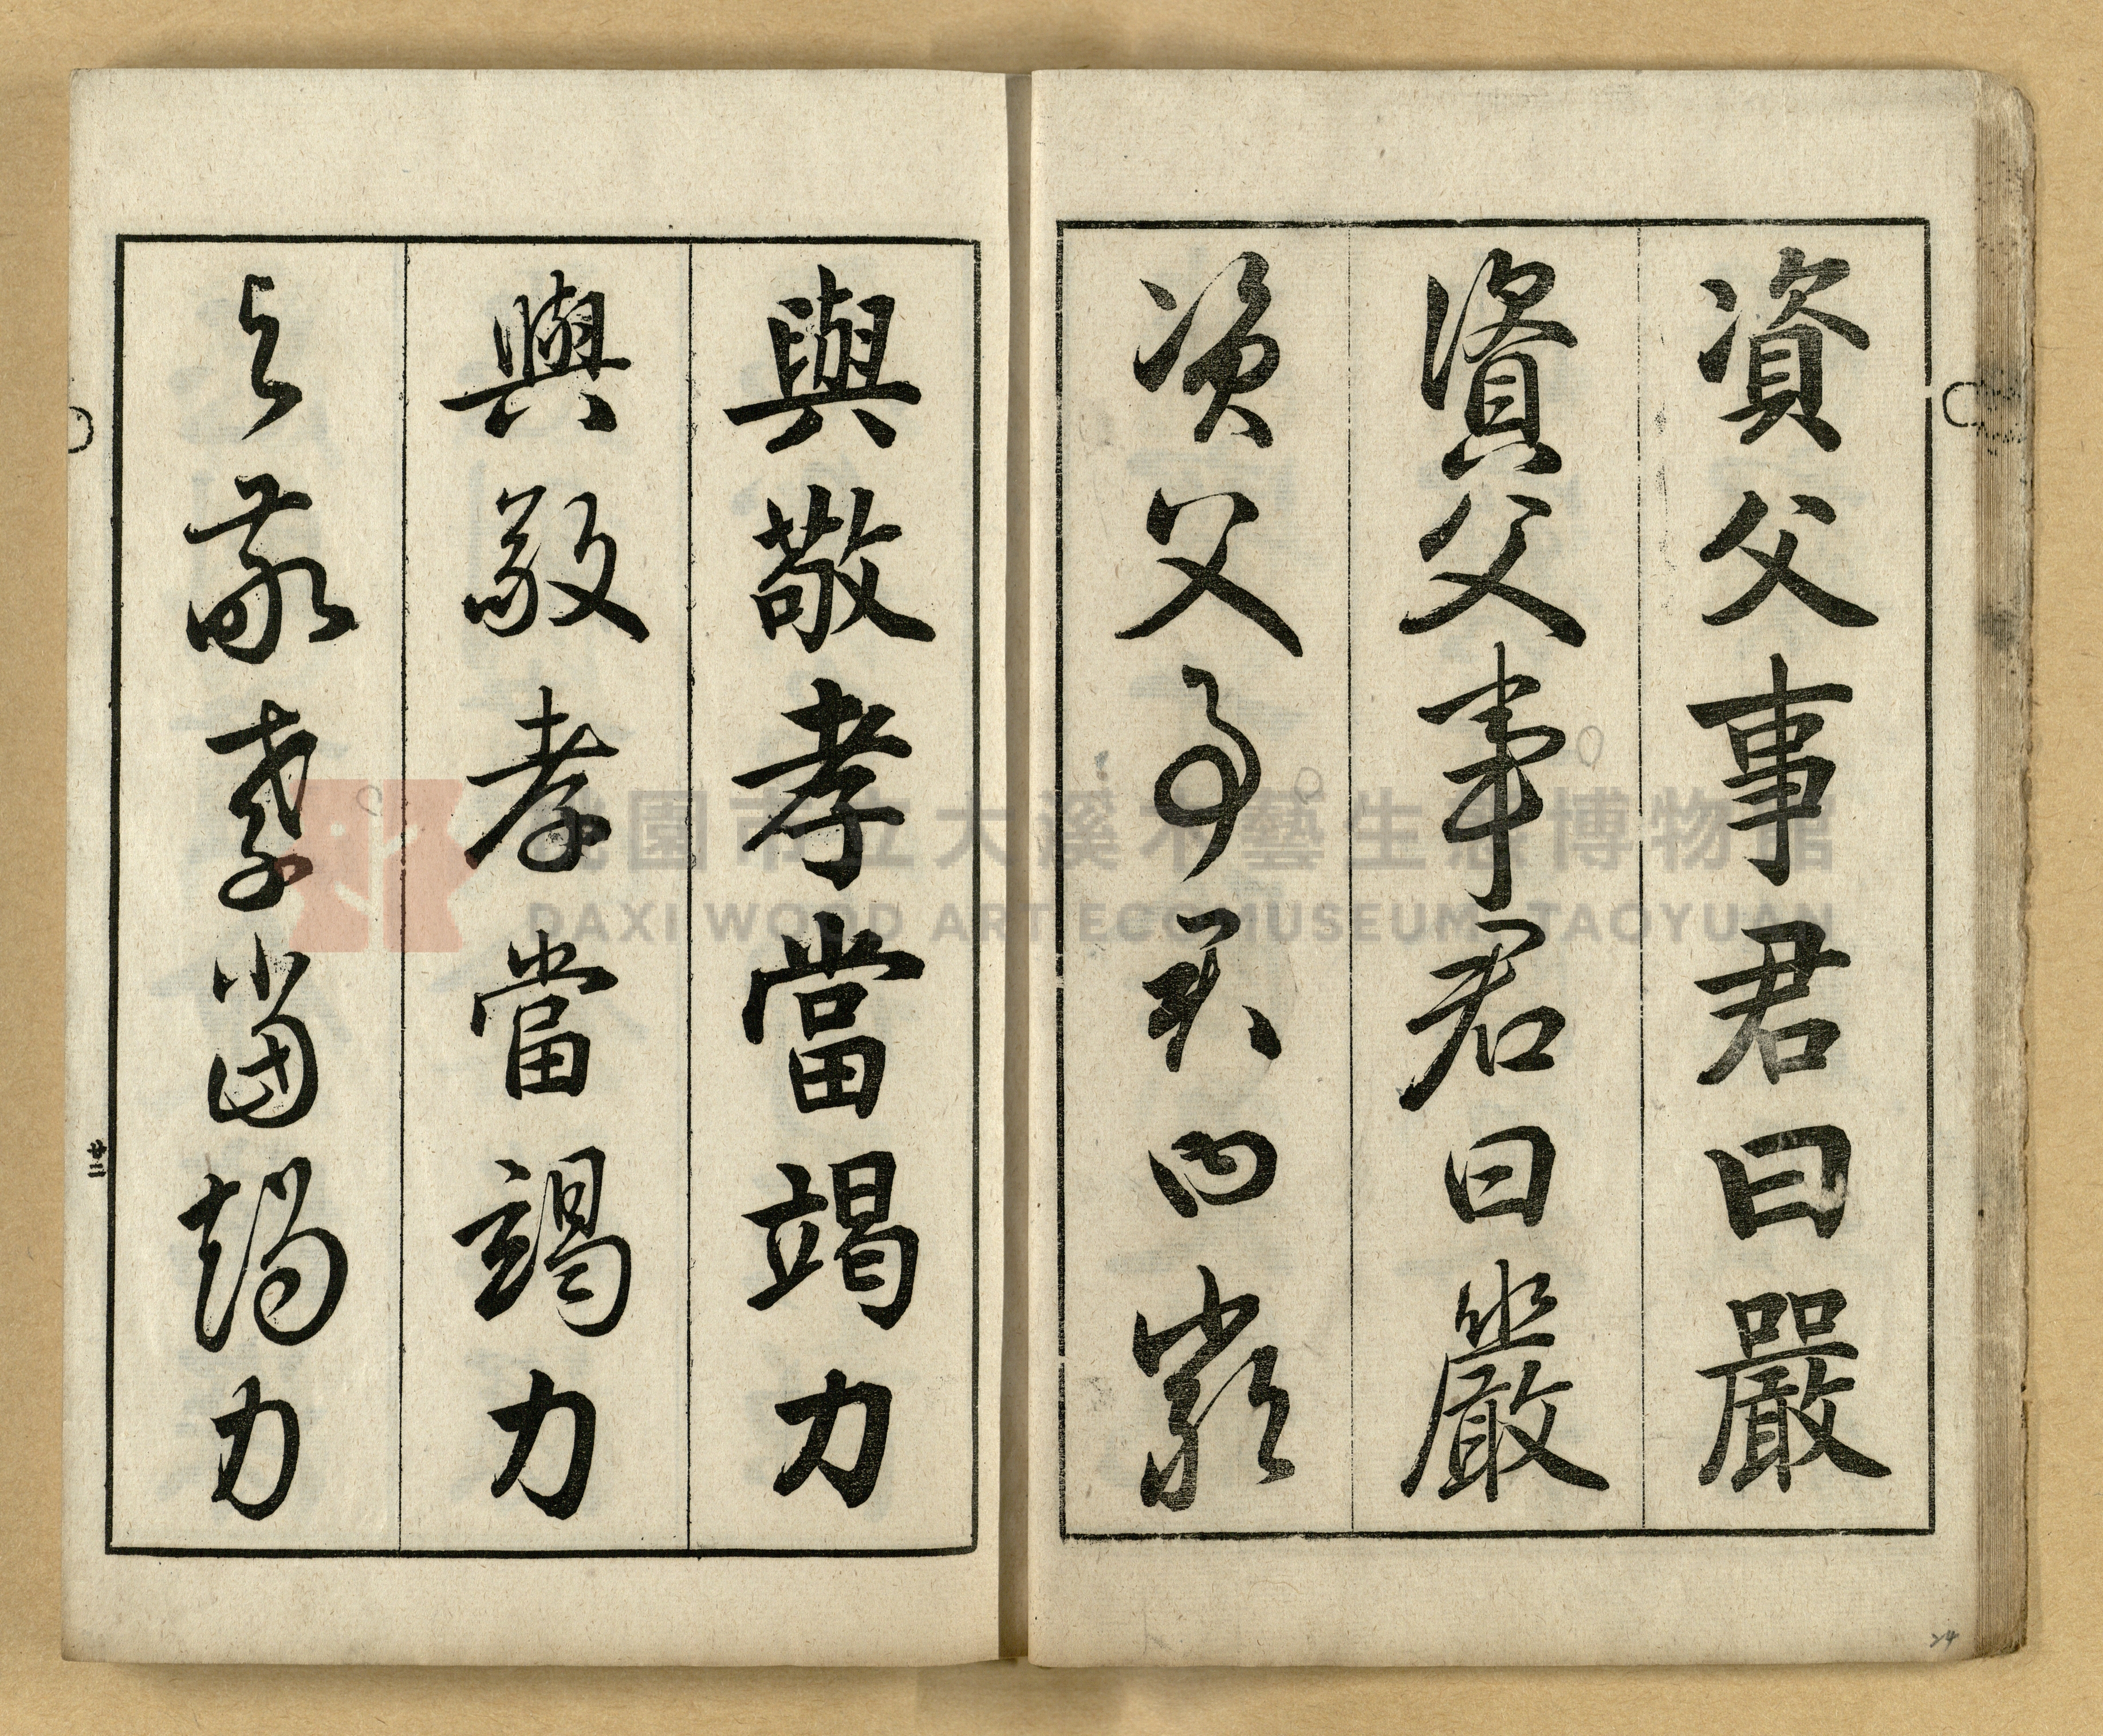 資父事君曰嚴
資父事君曰嚴
資父事君曰嚴
與敬孝當竭力
與敬孝當竭力
與敬孝當竭力
桃園市立大溪木藝生態博物館
DAXI WOOD ART ECOMUSEUM, TAOYUAN
24